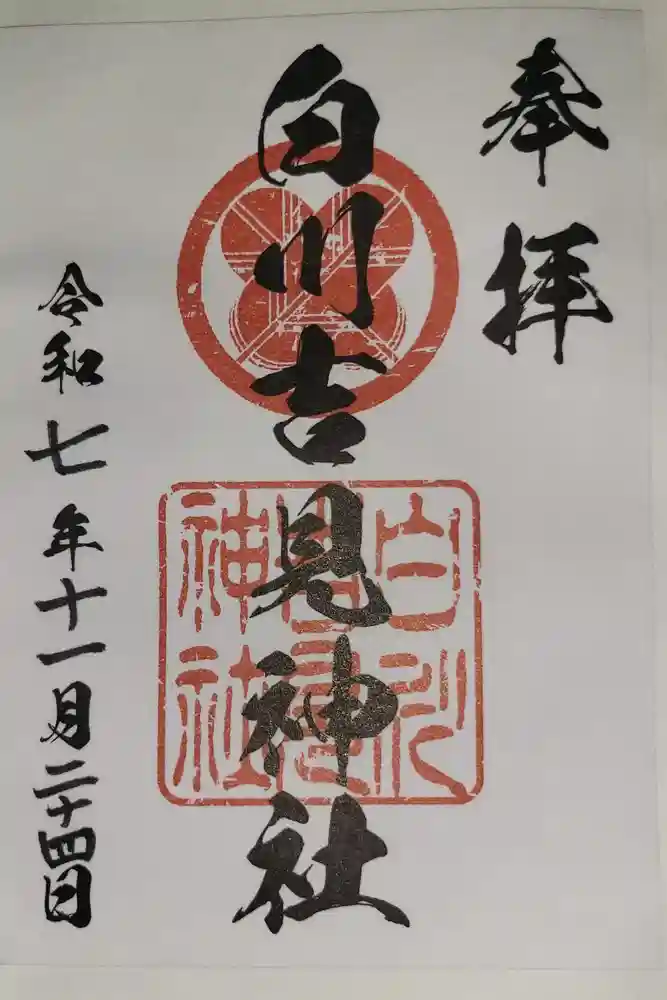 奉拝
白川吉見神社
白川吉見神社
令和七年十一月二十四日